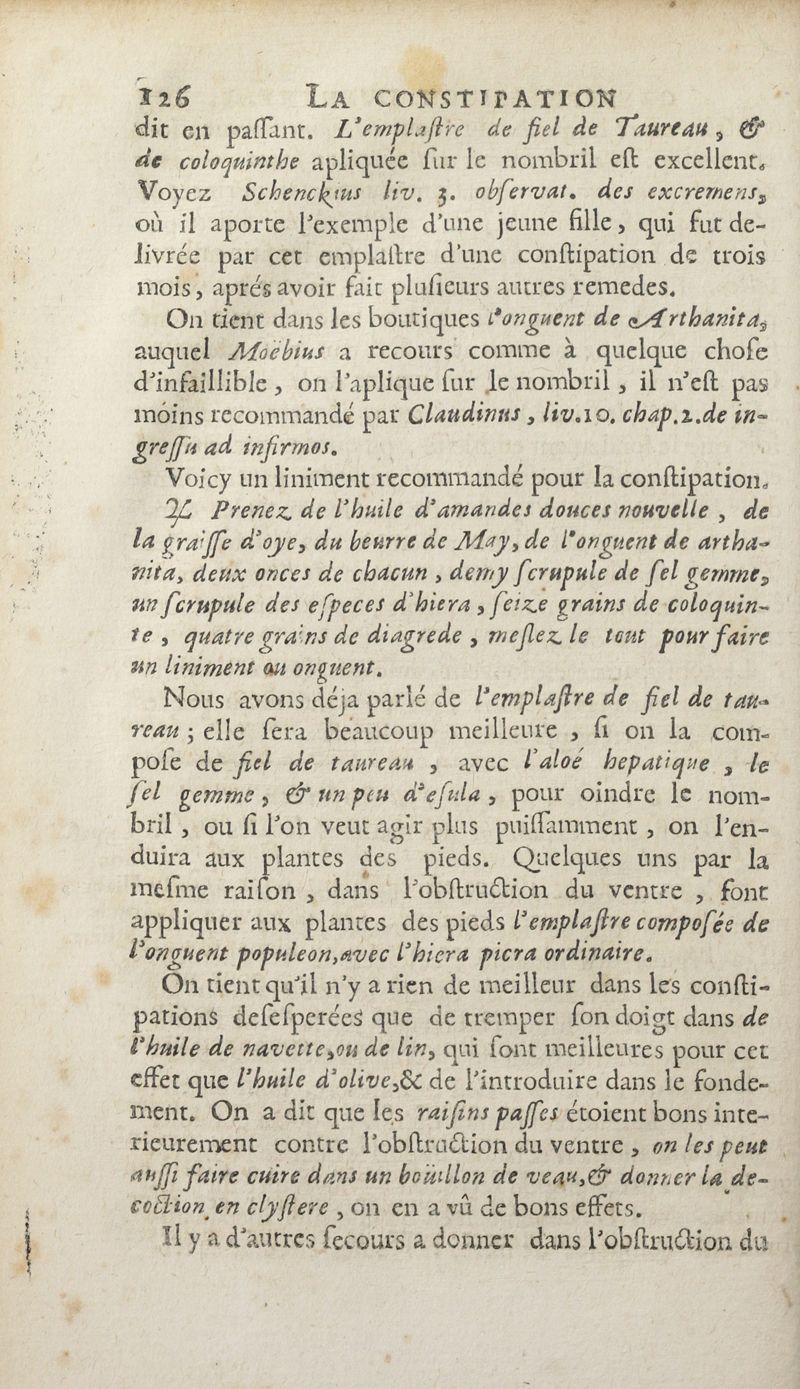 126 LA CONSTIPATION
dit en paſſant. L'emplaſtre de fiel de Taureau, &
de coloquinthe apliquée ſur le nombril eſt excellent.
Voyez Schenckius liv. 3. obſervat. des excremens,
où il aporte l'exemple d'une jeune fille, qui fut de-
livrée par cet emplaſtre d'une conſtipation de trois
mois, aprés avoir fait pluſieurs autres remedes.
On tient dans les boutiques l'onguent de Arthanita,
auquel Moëbius a recours comme à quelque choſe
d'infaillible, on l'aplique ſur le nombril, il n'eſt pas
moins recommandé par Claudinus, liv.10. chap.2.de in-
greſſu ad infirmos.
Voicy un liniment recommandé pour la conſtipation.
♃ Prenez de l'huile d'amandes douces nouvelle, de
la graiſſe d'oye, du beurre de May, de l'onguent de artha-
nita, deux onces de chacun, demy ſcrupule de ſel gemme,
un ſcrupule des eſpeces d'hiera, ſeize grains de coloquin-
te, quatre grains de diagrede, meſlez le tout pour faire
un liniment ou onguent.
Nous avons déja parlé de l'emplaſtre de fiel de tau-
reau; elle ſera beaucoup meilleure, ſi on la com-
poſe de fiel de taureau, avec l'aloé hepatique, le
ſel gemme, & un peu d'eſula, pour oindre le nom-
bril, ou ſi l'on veut agir plus puiſſamment, on l'en-
duira aux plantes des pieds. Quelques uns par la
meſme raiſon, dans l'obſtruction du ventre, font
appliquer aux plantes des pieds l'emplaſtre compoſée de
l'onguent populeon, avec l'hiera picra ordinaire.
On tient qu'il n'y a rien de meilleur dans les conſti-
pations deſeſperées que de tremper ſon doigt dans de
l'huile de navette, ou de lin, qui ſont meilleures pour cet
effet que l'huile d'olive, & de l'introduire dans le fonde-
ment. On a dit que les raiſins paſſes étoient bons inte-
rieurement contre l'obſtruction du ventre, on les peut
auſſi faire cuire dans un boüillon de veau, & donner la de-
coction en clyſtere, on en a vû de bons effets.
Il y a d'autres ſecours a donner dans l'obſtruction du